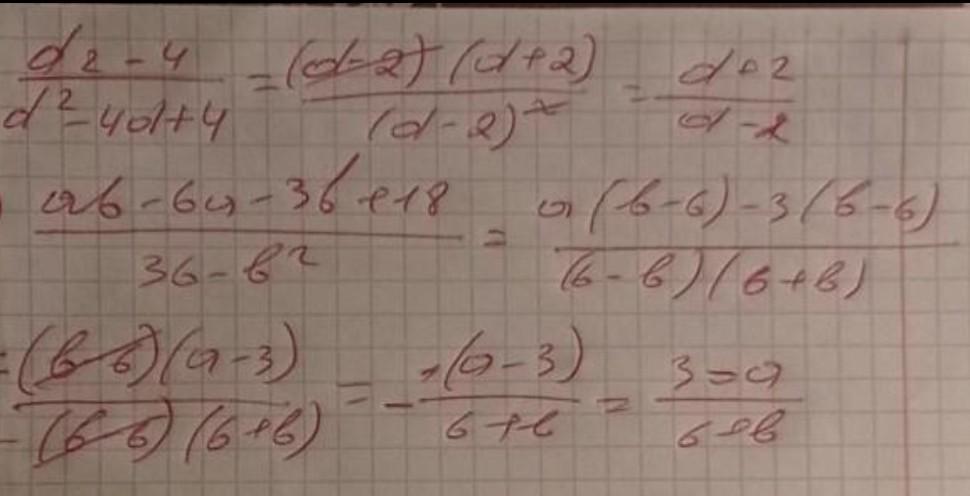 (d2 - 4)/(d² - 4d + 4) = ((d-2)(d+2))/((d-2)²) = (d+2)/(d-2)
(ab - 6a - 3b + 18)/(36 - b²) = (a(b-6) - 3(b-6))/((6-b)(6+b))
= ((b-6)(a-3))/(-(b-6)(6+b)) = -(a-3)/(6+b) = (3-a)/(6+b)